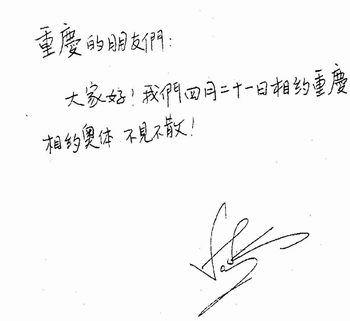 重慶的朋友們：
大家好！我們四月二十一日相約重慶
相約奧体 不見不散！